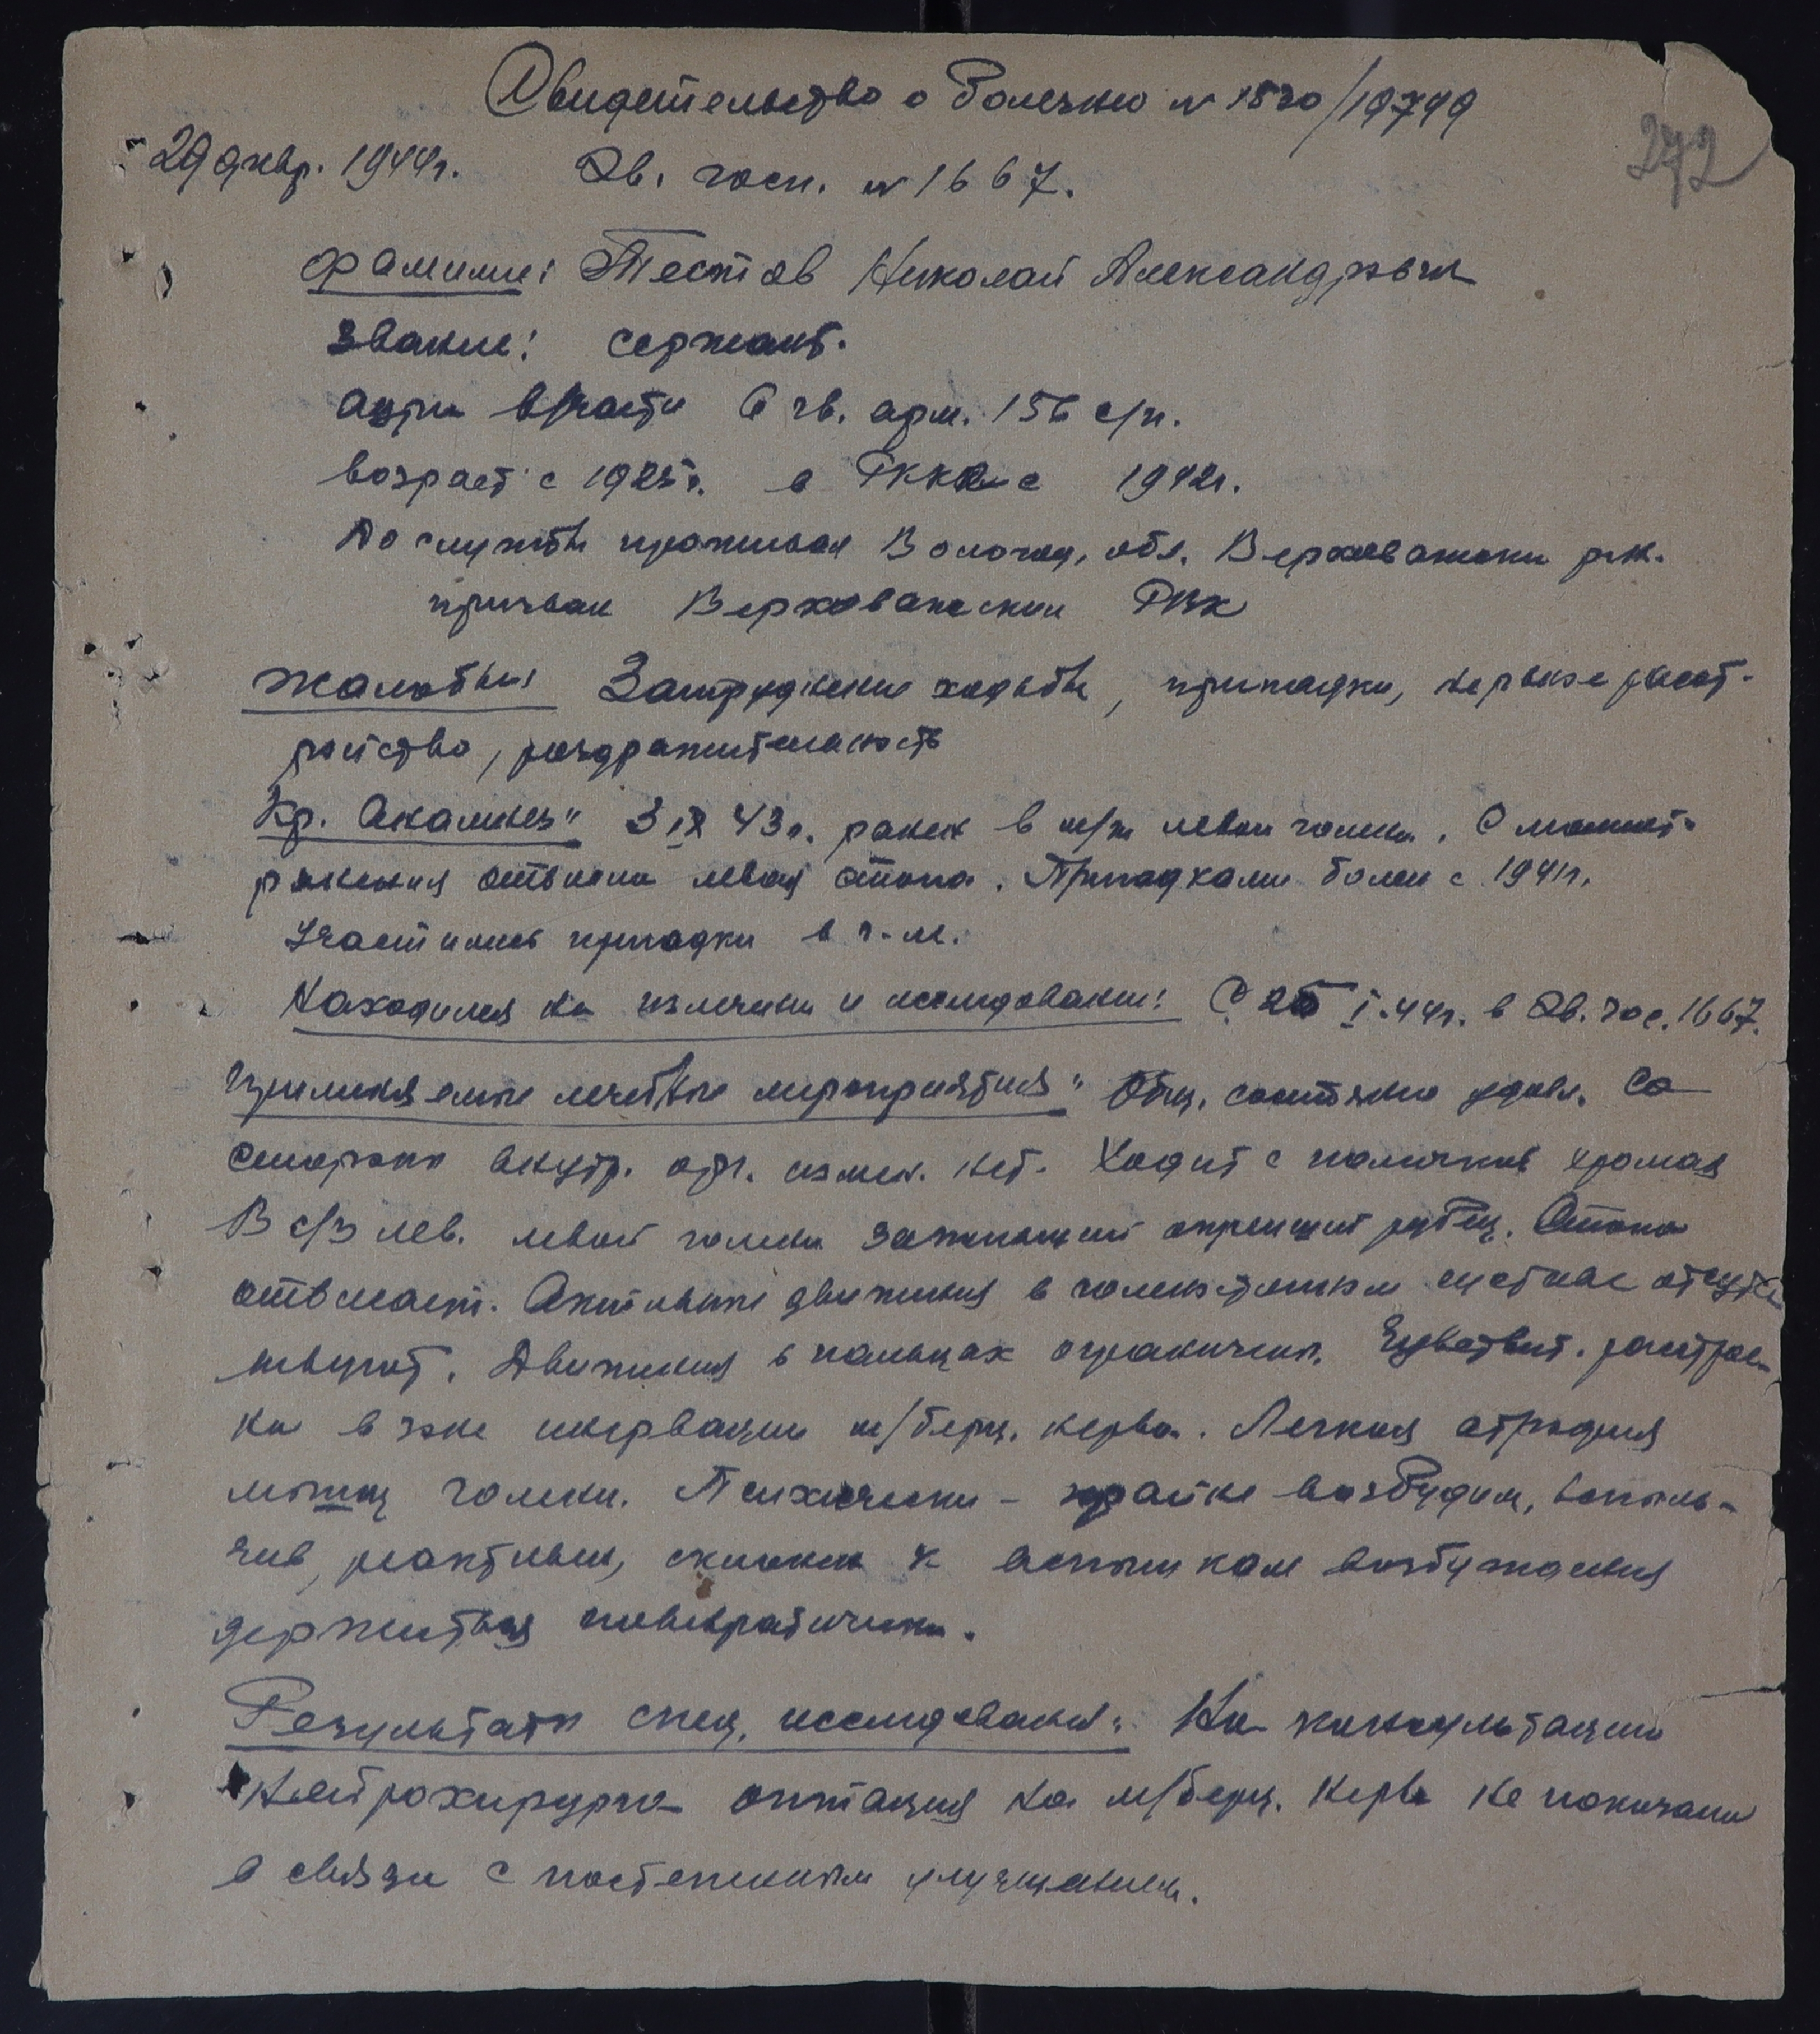 Свидетельство о болезни № 1520/19749
272
29 янвр. 1944г. Эв. госп. № 1667.
Фамилия: Тестов Николай Александрович
Звание: сержант.
части 6 гв. арм. 156 с/п.
возраст с 1925г. в РККА с 1942г.
До службы проживал Вологод. обл. Верховажский р-н.
призван Верховажским РВК
Жалобы: Затруднение ходьбы, припадки, нервное расст-
ройство, раздражительность
Кр. Анамнез: 3 IX 43г. ранен в м/т левой голени. С момент.
ранения отвисла левая стопа. Припадками болен с 1941г.
Участились припадки в г-ле.
Находился на излечении и исследовании: С 25 I.44г. в Эв. гос. 1667.
Применяемые лечебные мероприятия: Общ. состояние удовл. Со
стороны внутр. орг. измен. нет. Ходит с палочкой хромая
В с/з лев. левой голени заживший окрепший рубец. Стопа
отвисает. Активные движения в голеностопном суставе отсутс
твуют. Движения в пальцах ограничены. Чувствит. расстрое-
на в зоне иннервации м/берц. нерва. Легкая атрофия
мышц голени. Психически – крайне возбудим, вспыль-
чив, реактивен, склонен к вспышкам возбуждения
держится
Результаты спец. исследования: На консультации
нейрохирурга операция на м/берц. нерве не показана
в связи с постепенным улучшением.